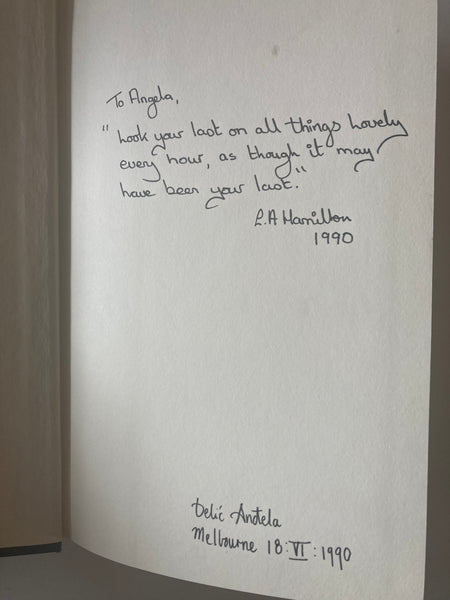 To Angela,
"Look your last on all things lovely
every hour, as though it may
have been your last."
L.A Hamilton
1990
Đelić Anđela
Melbourne 18:VI:1990